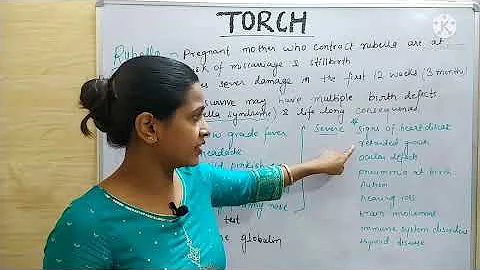 TORCH
Rubella - Pregnant mother who contract rubella are at
risk of miscarriage & stillbirth
sever damage in the first 12 weeks (3 months)
survive may have multiple birth defects
syndrome) & life long consequences
low grade fever
headache
mild pinkish
runny nose
test
globulin
Severe
signs of heart diseas
retarded growth
ocular defects
pneumonia at birth
Autism
hearing loss
brain involvement
immune system disorders
thyroid disease